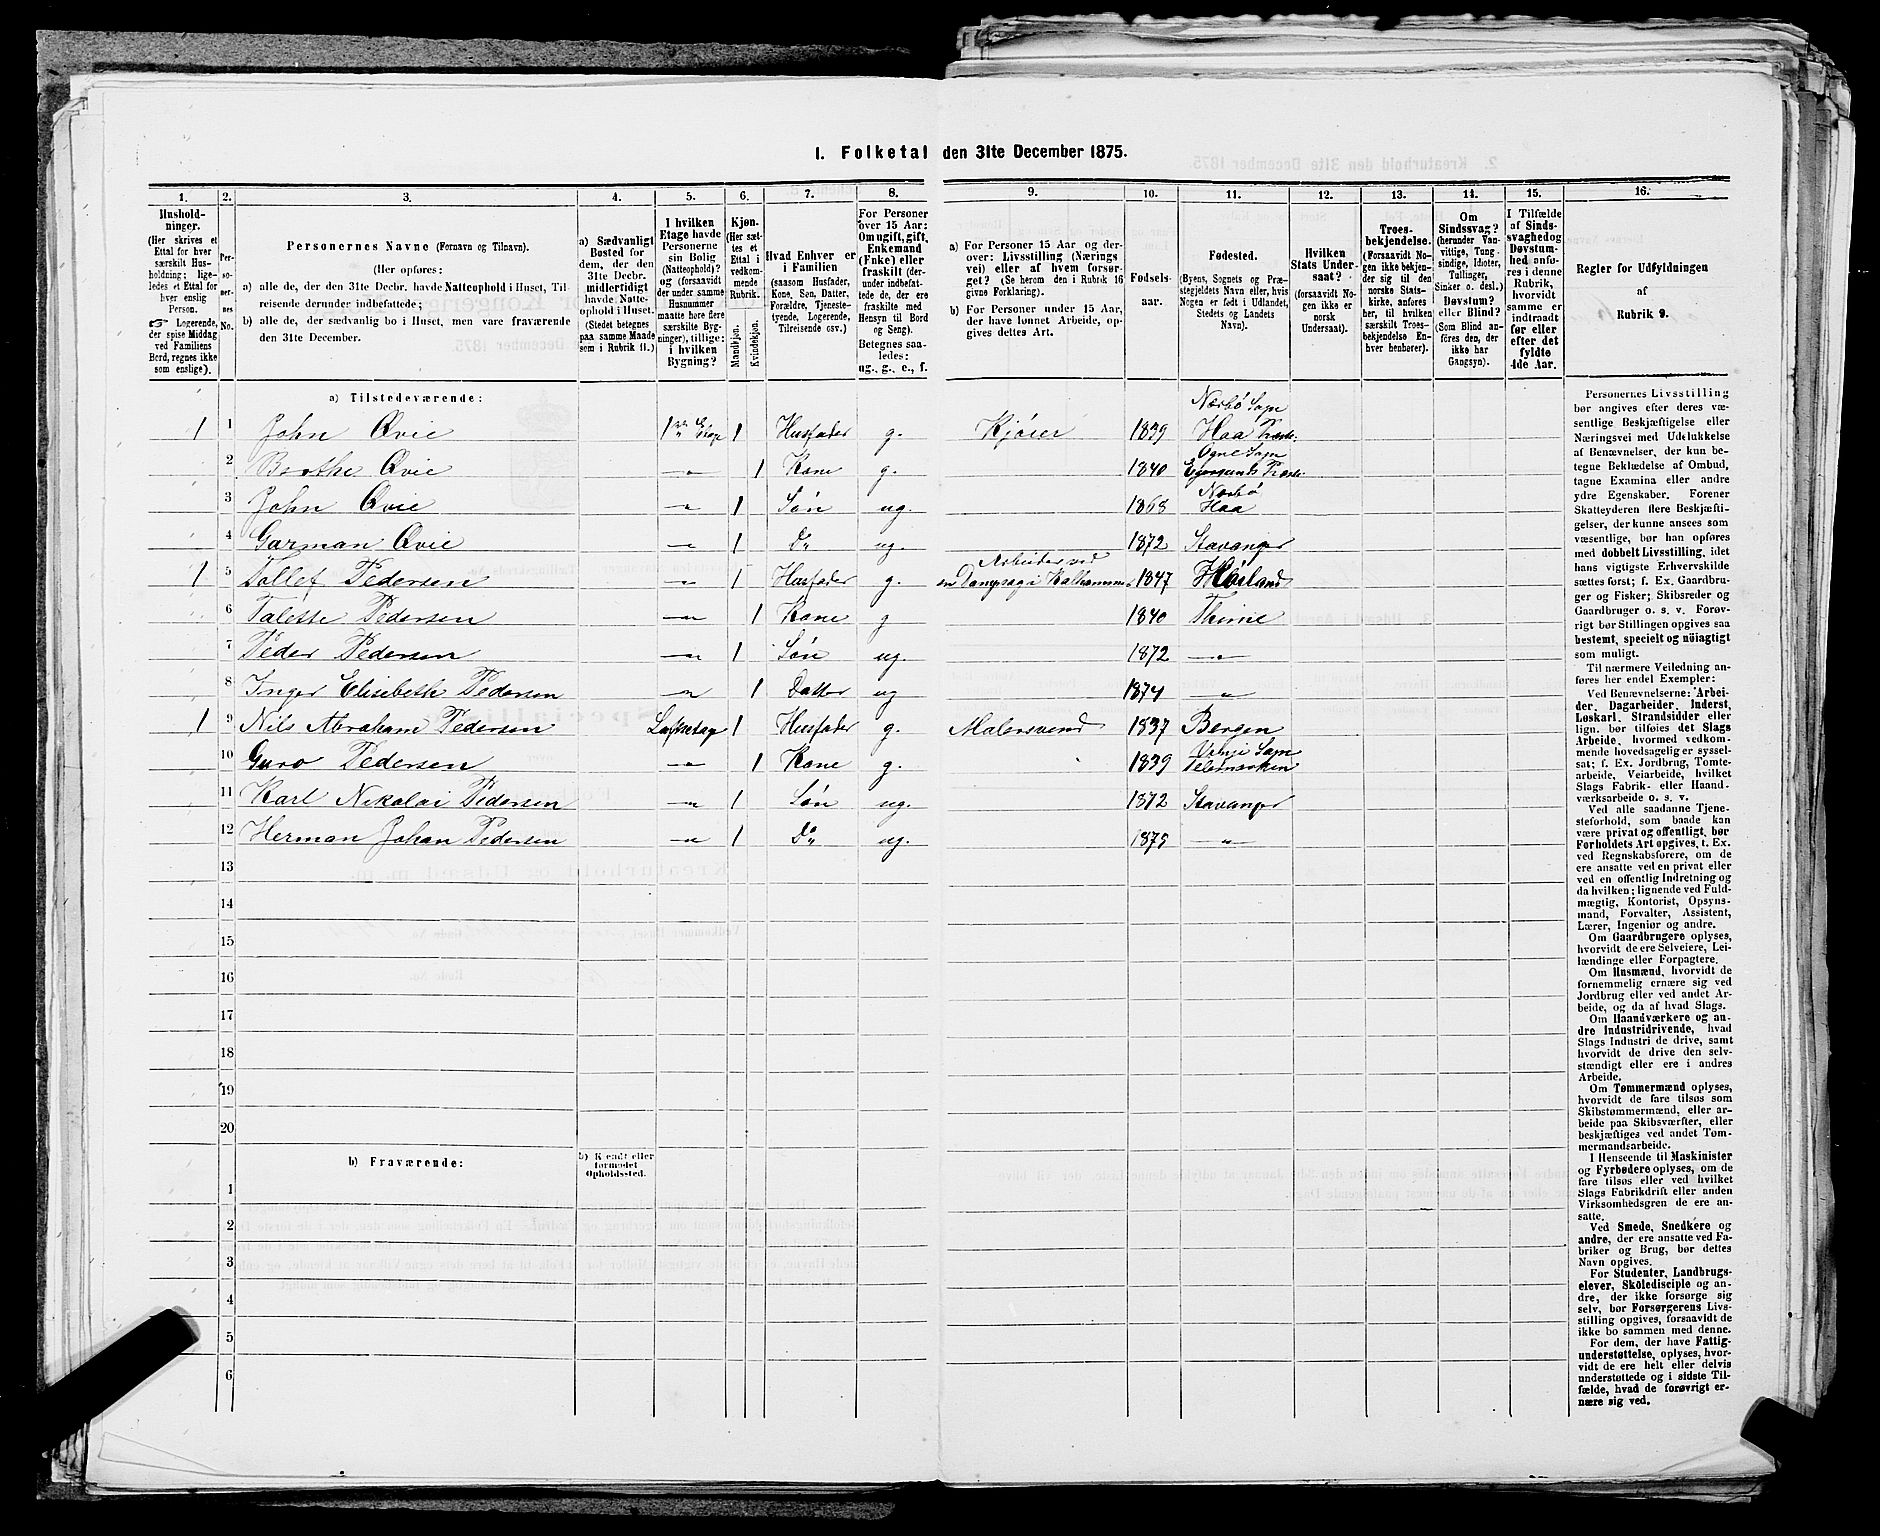 1. Folketal den 31te December 1875.
1. 2. 3. 4. 5. 6. 7. 8. 9. 10. 11. 12. 13. 14. 15. 16.
Hushold-
ninger.
(Her skrives et
Ettal for hver
særskilt Hus-
holdning; lige-
ledes et Ettal
for hver enslig
Person.
☞ Logerende,
der spise Middag
ved Familiens
Bord, regnes ikke
som enslige).
Per-
so-
ner-
nes
No.
Personernes Navne (Fornavn og Tilnavn).
(Her opføres:
a) alle de, der den 31te Decbr. havde Natteophold i Huset, Til-
reisende derunder indbefattede;
b) alle de, der sædvanlig bo i Huset, men vare fraværende
den 31te December.
a) Sædvanligt
Bosted for
dem, der den
31te Decbr.
midlertidigt
havde Natte-
ophold i Huset.
(Stedet betegnes
paa samme Maade
som i Rubrik 11.)
I hvilken
Etage havde
Personerne
sin Bolig
(Natteophold)?
og (forsaavidt
der under samme
Husnummer
maatte høre flere
særskilte Byg-
ninger), tillige:
i hvilken
Bygning?
Kjøn.
(Her sæt-
tes et
Ettal i
vedkom-
mende
Rubrik.
Mandkjøn.
Kvindekjøn.
Hvad Enhver er
i Familien
(saasom Husfader,
Kone, Søn, Datter,
Forældre, Tjeneste-
tyende, Logerende,
Tilreisende osv.)
For Personer
over 15 Aar:
Om ugift, gift,
Enkemand
(Enke) eller
fraskilt (der-
under indbefat-
tede de, der ere
fraskilte med
Hensyn til Bord
og Seng).
Betegnes saa-
ledes:
ug., g., e., f.
a) For Personer 15 Aar og der-
over: Livsstilling (Nærings
vei) eller af hvem forsør-
get? (Se herom den i Rubrik 16
givne Forklaring).
b) For Personer under 15 Aar,
der have lønnet Arbeide, op-
gives dettes Art.
Fødsels-
aar.
Fødested.
(Byens, Sognets og Præ-
stegjeldets Navn eller, hvis
Nogen er født i Udlandet,
Stedets og Landets
Navn).
Hvilken
Stats Under-
saat?
(forsaavidt No-
gen ikke er
norsk
Undersaat).
Troes-
bekjendelse.
(Forsaavidt No-
gen ikke bekjen-
der sig til den
norske Stats-
kirke, anføres
her, til hvilken
særskilt Troes-
bekjendelse En-
hver henhører).
Om
Sindssvag?
(herunder Van-
vittige, Tung-
sindige, Idioter,
Tullinger,
Sinker o. desl.)
Døvstum?
eller Blind?
(Som Blind an-
føres den, der
ikke har
Gangsyn).
I Tilfælde
af Sinds-
svaghed og
Døvstum-
hed anfø-
res i denne
Rubrik,
hvorvidt
samme er
indtraadt
før eller
efter det
fyldte
4de Aar.
Regler for Udfyldningen
af
Rubrik 9.
a) Tilstedeværende:
1 1 John Øvie 1ste Etage 1 Husfader g. Kjører 1839 Nærbø Sogn Haa Præst.
2 Berthe Øvie — " — 1 Kone g. 1840 Ogne Sogn Egersunds Præst.
3 John Øvie — " — 1 Søn ug. 1868 Nærbø Haa
4 Garman Øvie — " — 1 Do ug. 1872 Stavanger
1 5 Tollef Pedersen — " — 1 Husfader g. Arbeider ved en Dampsag i 1847
6 Talette Pedersen — " — 1 Kone g 1840 Thime
7 Peder Pedersen — " — 1 Søn ug. 1872 — " —
8 Inger Elisebeth Pedersen — " — 1 Datter ug 1874 — " —
1 9 Nils Abraham Pedersen Loftsetage 1 Husfader g. Malersvend 1837 Bergen
10 Guro Pedersen — " — 1 Kone g. 1839 Sogn Telemarken
11 Karl Nikolai Pedersen — " — 1 Søn ug. 1872 Stavanger
12 Herman Johan Pedersen — " — 1 Do ug. 1875 — " —
13
14
15
16
17
18
19
20
b) Fraværende:
b) Kjendt eller
formodet
Opholdssted.
1
2
3
4
5
6
Personernes Livsstilling
bør angives efter deres væ-
sentlige Beskjæftigelse eller
Næringsvei med Udelukkelse
af Benævnelser, der kun be-
tegne Beklædelse af Ombud,
tagne Examina eller andre
ydre Egenskaber. Forener
Skatteyderen flere Beskjæfti-
gelser, der kunne ansees som
væsentlige, bør han opføres
med dobbelt Livsstilling, idet
hans vigtigste Erhvervskilde
sættes først; f. Ex. Gaardbru-
ger og Fisker; Skibsreder og
Gaardbruger o. s. v. Forøv-
rigt bør Stillingen opgives saa
bestemt, specielt og nøiagtigt
som muligt.
Til nærmere Veiledning an-
føres her endel Exempler:
Ved Benævnelserne: Arbei-
der, Dagarbeider, Inderst,
Løskarl, Strandsidder eller
lign. bør tilføies det Slags
Arbeide, hvormed vedkom-
mende hovedsagelig er syssel-
sat; f. Ex. Jordbrug, Tomte-
arbeide, Veiarbeide, hvilket
Slags Fabrik- eller Haand-
værksarbeide o. s. v.
Ved alle saadanne Tjene-
steforhold, som baade kan
være privat og offentligt, bør
Forholdets Art opgives, t. Ex.
ved Regnskabsførere, om de
ere ansatte ved en privat eller
ved en offentlig Indretning og
da hvilken; lignende ved Fuld-
mægtig, Kontorist, Opsyns-
mand, Forvalter, Assistent,
Lærer, Ingeniør og andre.
Om Gaardbrugere oplyses,
hvorvidt de ere Selveiere, Lei-
lændinge eller Forpagtere.
Om Husmænd, hvorvidt de
fornemmelig ernære sig ved
Jordbrug eller ved andet Ar-
beide, og da af hvad Slags.
Om Haandværkere og an-
dre Industridrivende, hvad
Slags Industri de drive, samt
hvorvidt de drive den selv-
stændigt eller ere i andres
Arbeide.
Om Tømmermænd oplyses,
hvorvidt de fare tilsøs som
Skibstømmermænd, eller ar-
beide paa Skibsværfter, eller
beskjæftiges ved andet Tøm-
mermandsarbeide.
I Henseende til Maskinister
og Fyrbødere oplyses, om de
fare tilsøs eller ved hvilket
Slags Fabrikdrift eller anden
Virksomhedsgren de ere an-
satte.
Ved Smede, Snedkere og
andre, der ere ansatte ved Fa-
briker og Brug, bør dettes
Navn opgives.
For Studenter, Landbrugs-
elever, Skoledisciple og an-
dre, der ikke forsørge sig
selv, bør Forsørgerens Livs-
stilling opgives, forsaavidt de
ikke bo sammen med denne.
For dem, der have Fattig-
understøttelse, oplyses, hvor-
vidt de ere helt eller delvis
understøttede og i sidste Til-
fælde, hvad de forøvrigt er-
nære sig ved.